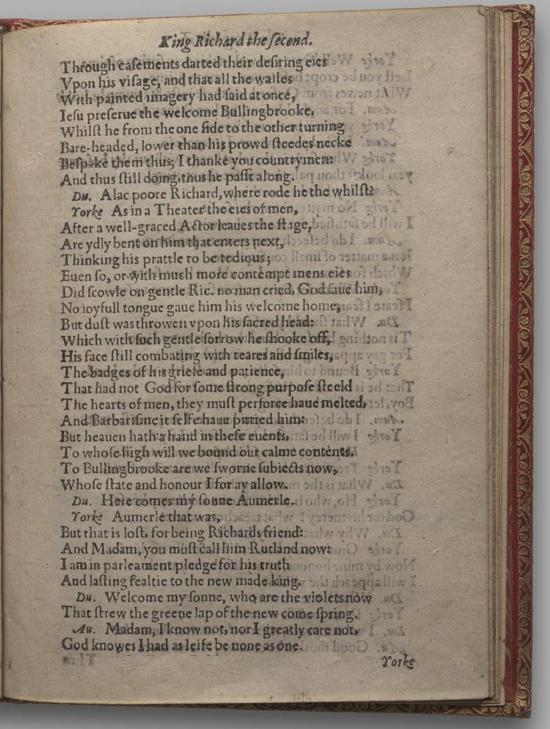 King Richard the second.
Through casements darted their desiring eies
Vpon his visage, and that all the walles
With painted imagery had said at once,
Iesu preserue the welcome Bullingbrooke,
Whilst he from the one side to the other turning
Bare-headed, lower than his prowd steedes necke
Bespake them thus, I thanke you countrymen:
And thus still doing, thus he past along.
Du. Alac poore Richard, where rode he the whilst?
Yorke As in a Theater the eies of men,
After a well-graced Actor leaues the stage,
Are ydly bent on him that enters next,
Thinking his prattle to be tedious;
Euen so, or with much more contempt mens eies
Did scowle on gentle Ric. no man cried, God saue him,
No ioyfull tongue gaue him his welcome home,
But dust was throwen vpon his sacred head:
Which with such gentle sorrow he shooke off,
His face still combating with teares and smiles,
The badges of his griefe and patience,
That had not God for some strong purpose steeld
The hearts of men, they must perforce haue melted,
And Barbarisme it selfe haue pittied him:
But heauen hath a hand in these euents,
To whose high will we bound our calme contents.
To Bullingbrooke are we sworne subiects now,
Whose state and honour I for ay allow.
Du. Here comes my sonne Aumerle.
Yorke Aumerle that was,
But that is lost, for being Richards friend:
And Madam, you must call him Rutland now:
I am in parleament pledge for his truth
And lasting fealtie to the new made king.
Du. Welcome my sonne, who are the violets now
That strew the greene lap of the new come spring.
Au. Madam, I know not, nor I greatly care not,
God knowes I had as leife be none as one.
Yorke